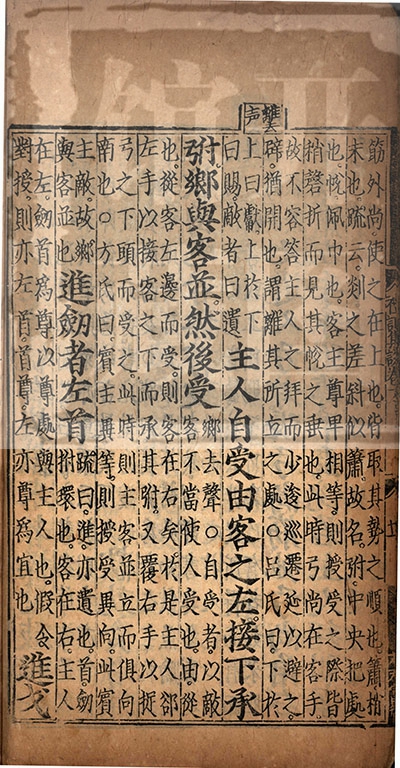 筋外尚使之在上也皆取其勢之順也簫捎
末也疏云剡之差斜似簫故名弣中央把處
也帨佩巾也客主尊卑相等則授受之際皆
稍磬折而見其帨之垂也此時弓尚在客手
故不容答主人之拜而少逡巡遷延以避之
辟猶開也謂離其所立之處○呂氏曰下於
上曰獻上於下
曰賜敵者曰遺
主人自受由客之左接下承
弣鄉與客並然後受
鄉去聲○自受者以敵
客不當使人受也由從
也從客左邊而受則客在右矣於是主人郤
左手以接客之下而承其弣又覆右手以捉
弓之下頭而受之此時則主客並立而俱向
南也○方氏曰賓主異等則授受異向此賓
主敵故鄉
與客並也
進劒者左首
疏曰進亦遺也首劒
拊環也客在右主人
在左劒首爲尊以尊處與主人也假令
對授則亦左首首尊左亦尊爲宜也
進戈